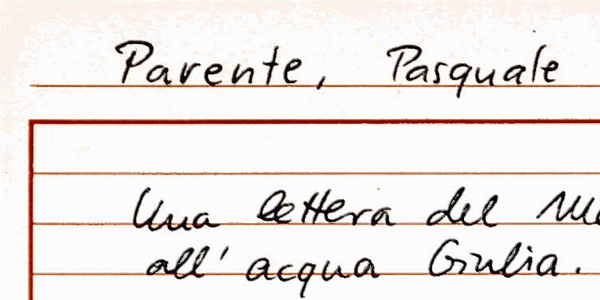 Parente, Pasquale
Una lettera del
all' acqua Giulia.